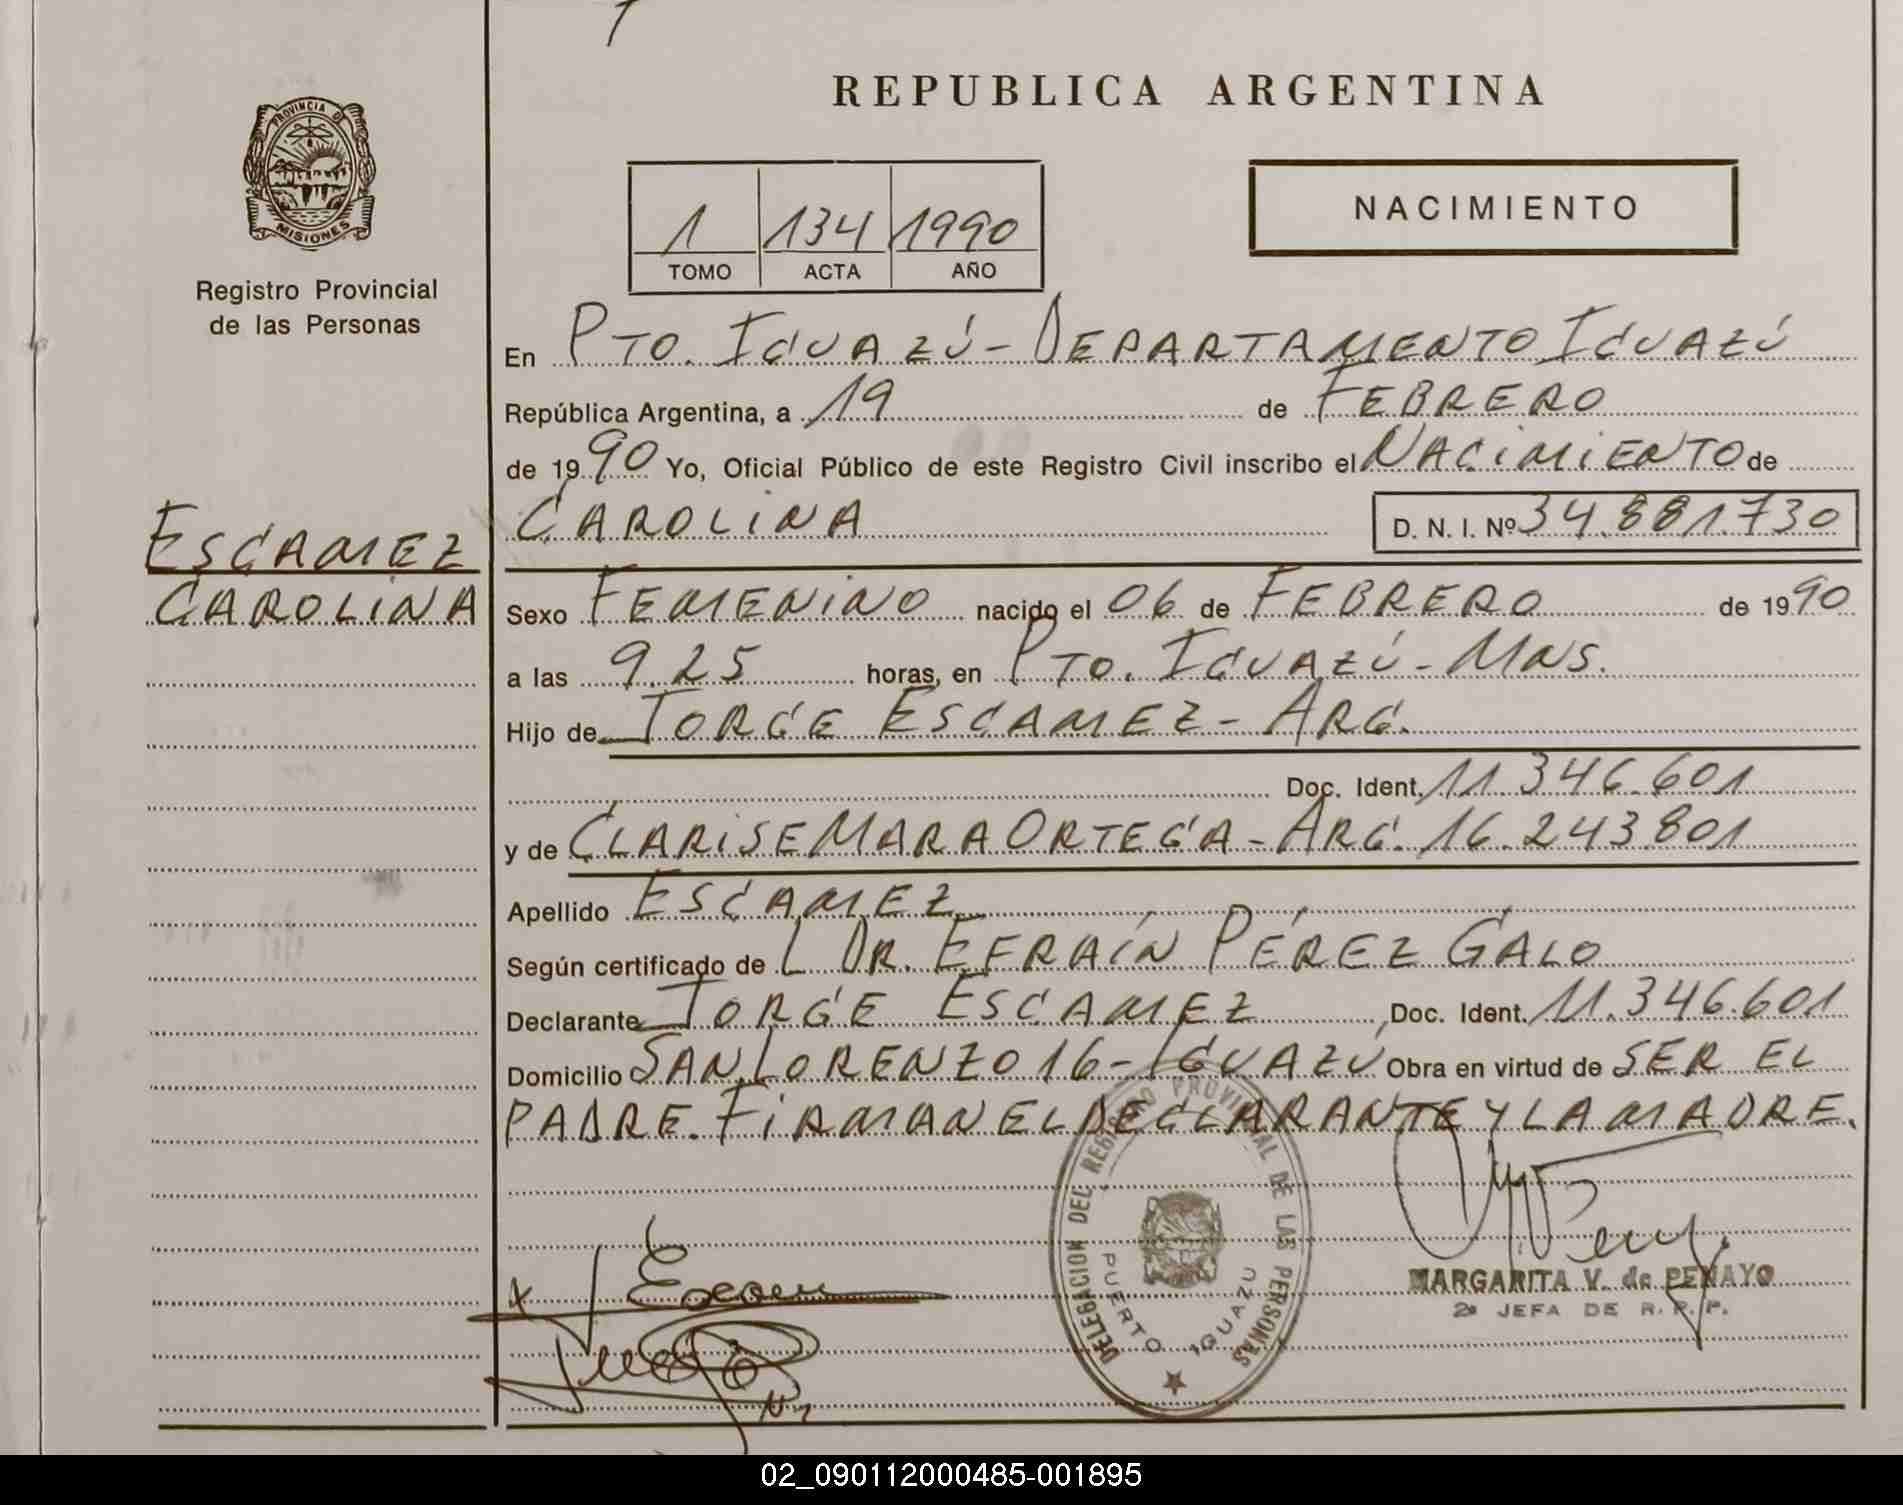 REPUBLICA ARGENTINA
PROVINCIA DE
MISIONES
Registro Provincial
de las Personas
NACIMIENTO
1 134 1990
TOMO ACTA AÑO
En PTO. IGUAZÚ - DEPARTAMENTO IGUAZÚ
República Argentina, a 19 de FEBRERO
de 1990 Yo, Oficial Público de este Registro Civil inscribo el NACIMIENTO de
CAROLINA D. N. I. Nº 34.881.730
ESCAMEZ
CAROLINA
Sexo FEMENINO nacido el 06 de FEBRERO de 1990
a las 9.25 horas, en PTO. IGUAZÚ - MNS.
Hijo de JORGE ESCAMEZ - ARG.
Doc. Ident. 11.346.601
y de CLARISE MARA ORTEGA - ARG. 16.243.801
Apellido ESCAMEZ
Según certificado de L DR. EFRAÍN PÉREZ GALO
Declarante JORGE ESCAMEZ, Doc. Ident. 11.346.601
Domicilio SAN LORENZO 16 - IGUAZÚ Obra en virtud de SER EL
PADRE. FIRMAN EL DECLARANTE Y LA MADRE.
DELEGACION DEL REGISTRO PROVINCIAL DE LAS PERSONAS
PUERTO IGUAZU
MARGARITA V. de PENAYO
2ª JEFA DE R. P. P.
02_090112000485-001895